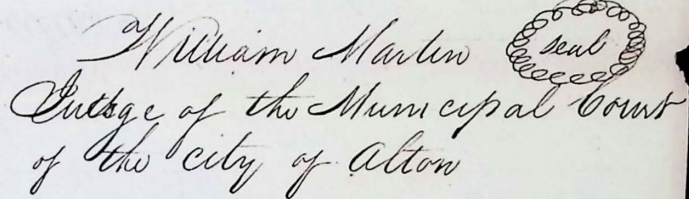 William Martin seal
Judge of the Municipal Court
of the city of Alton